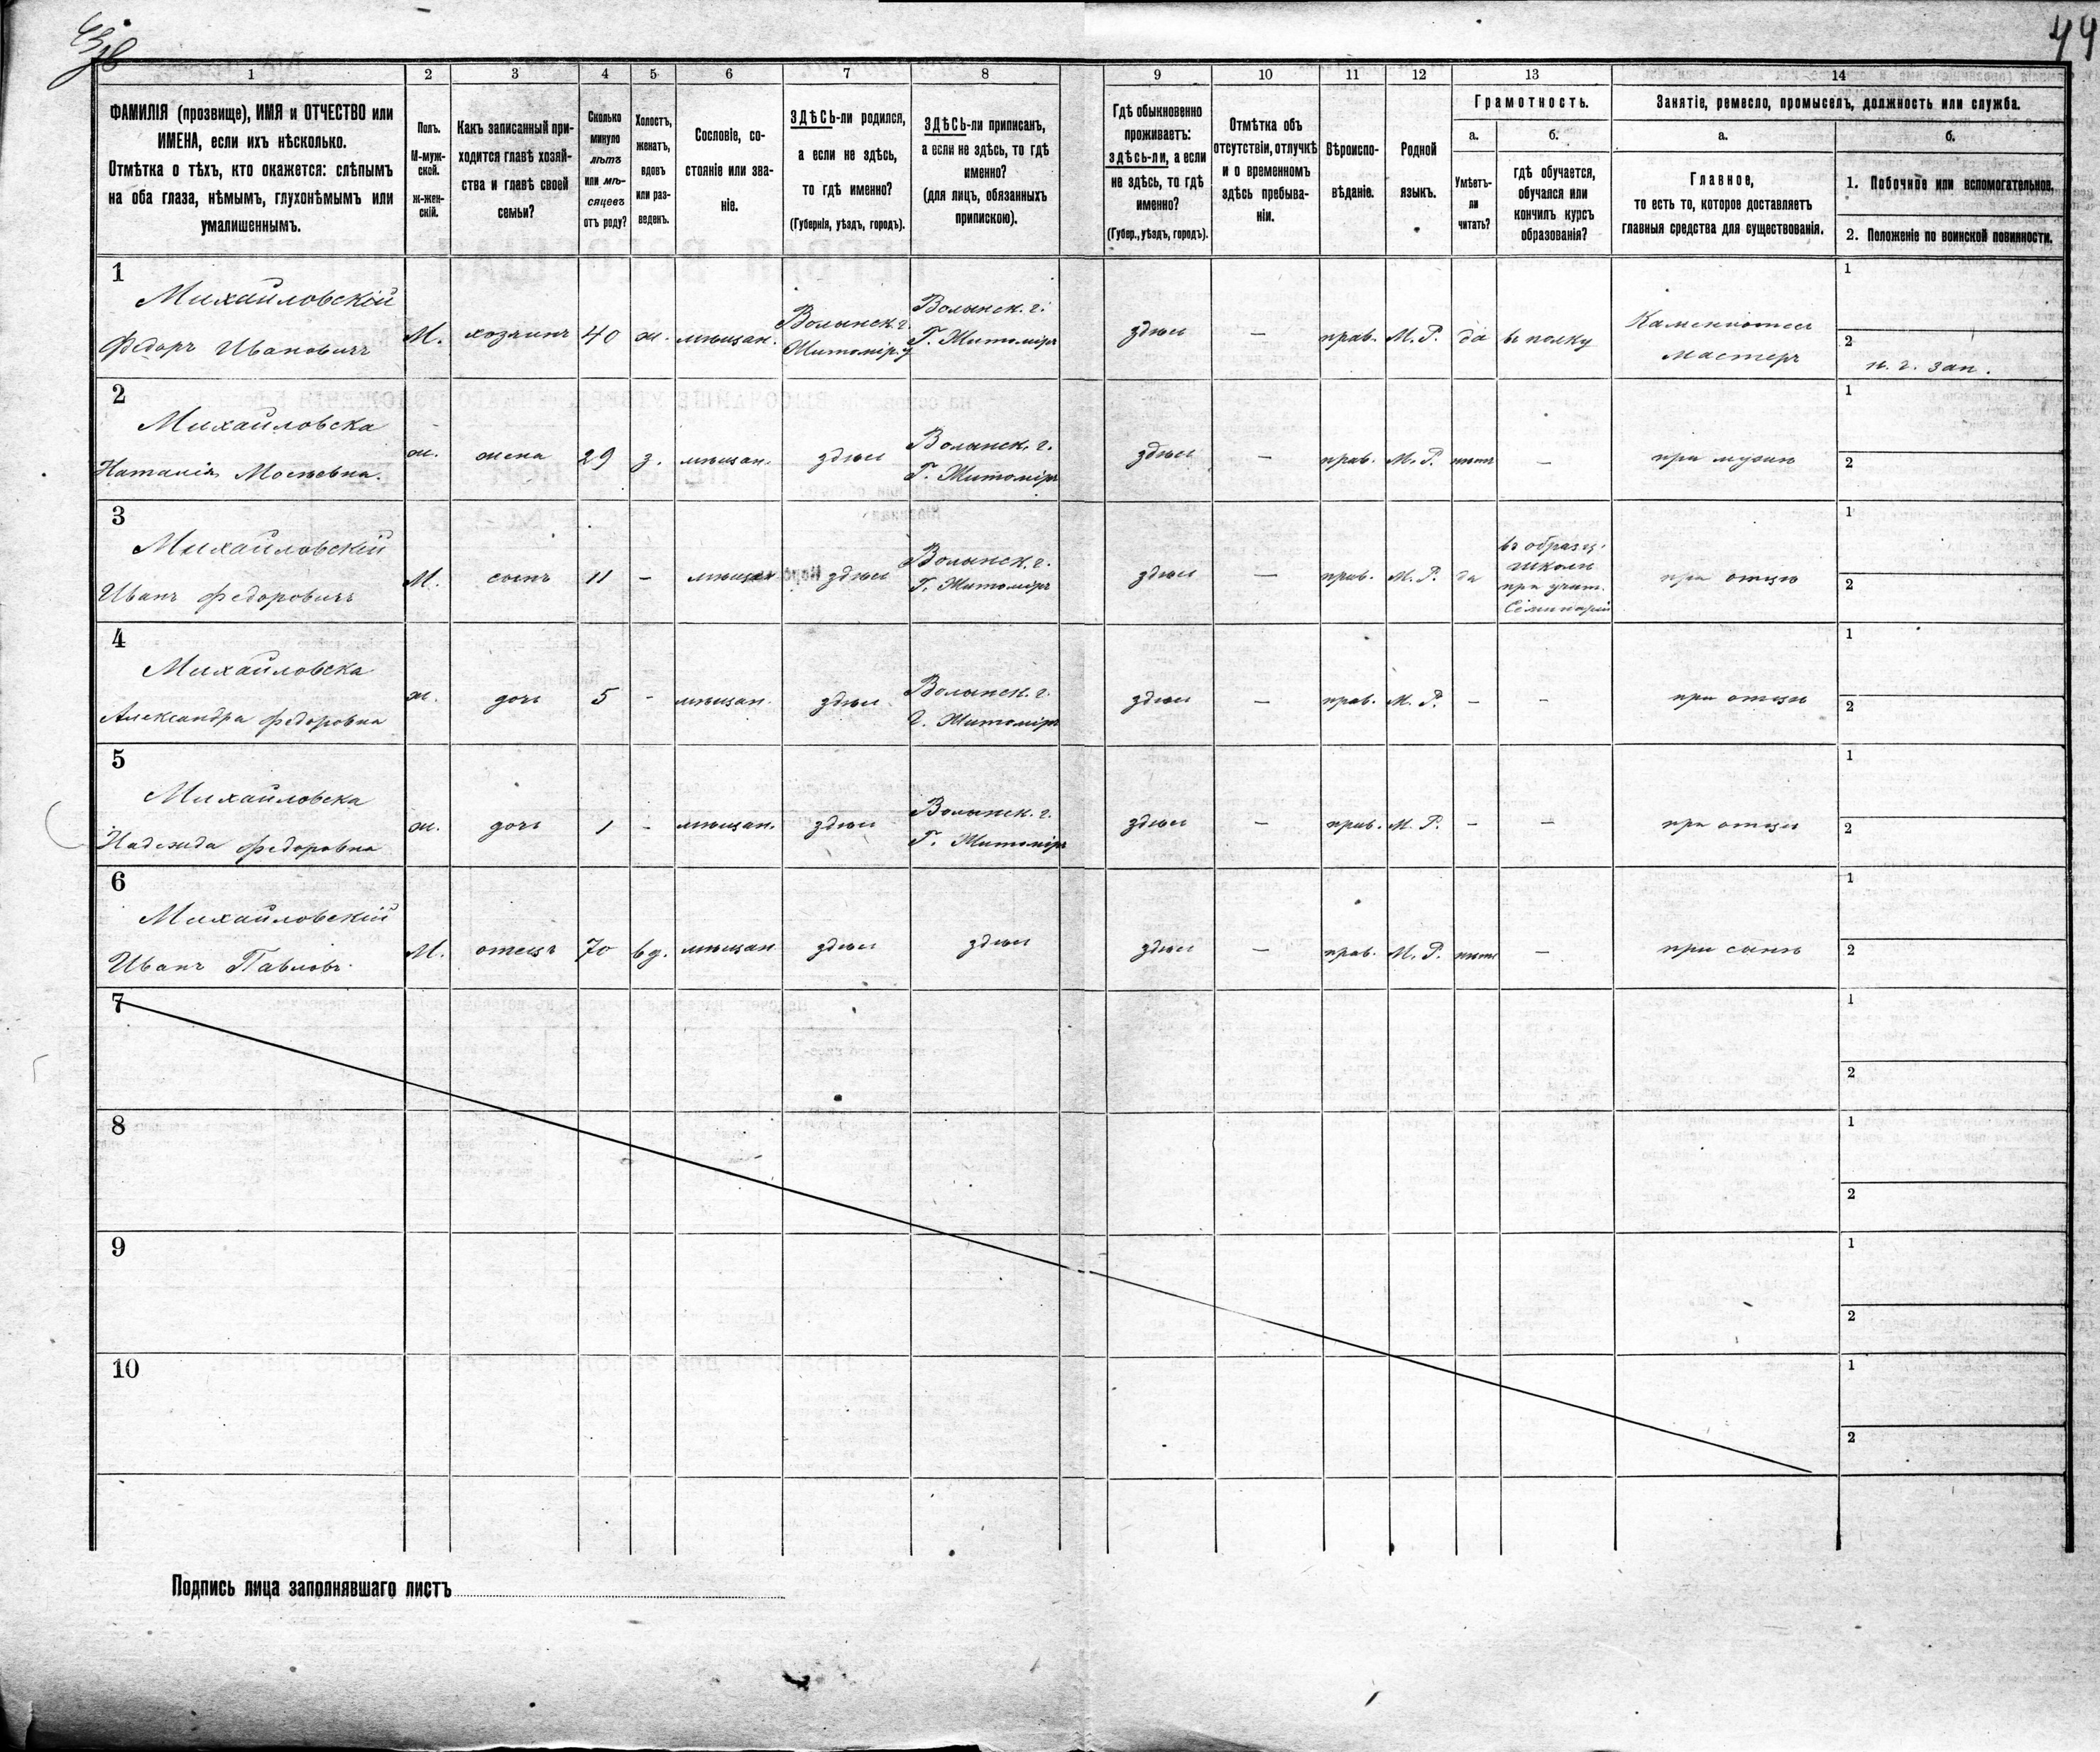 44
1 2 3 4 5 6 7 8 9 10 11 12 13 14
ФАМИЛІЯ (прозвище), ИМЯ и ОТЧЕСТВО или
ИМЕНА, если ихъ нѣсколько.
Отмѣтка о тѣхъ, кто окажется: слѣпымъ
на оба глаза, нѣмымъ, глухонѣмымъ или
умалишеннымъ.
Полъ.
М-муж-
ской.
ж-жен-
скій.
Какъ записанный при-
ходится главѣ хозяй-
ства и главѣ своей
семьи?
Сколько
минуло
лѣтъ
или мѣ-
сяцевъ
отъ роду?
Холостъ,
женатъ,
вдовъ
или раз-
веденъ.
Сословіе, со-
стояніе или зва-
ніе.
ЗДѢСЬ-ли родился,
а если не здѣсь,
то гдѣ именно?
(Губернія, уѣздъ, городъ).
ЗДѢСЬ-ли приписанъ,
а если не здѣсь, то гдѣ
именно?
(для лицъ, обязанныхъ
припискою).
Гдѣ обыкновенно
проживаетъ:
здѣсь-ли, а если
не здѣсь, то гдѣ
именно?
(Губер., уѣздъ, городъ).
Отмѣтка объ
отсутствіи, отлучкѣ
и о временномъ
здѣсь пребыва-
ніи.
Вѣроиспо-
вѣданіе.
Родной
языкъ.
Грамотность.
а.
Умѣетъ-
ли
читать?
б.
гдѣ обучается,
обучался или
кончилъ курсъ
образованія?
Занятіе, ремесло, промыселъ, должность или служба.
а.
Главное,
то есть то, которое доставляетъ
главныя средства для существованія.
б.
1. Побочное или вспомогательное.
2. Положеніе по воинской повинности.
1
Михайловскій
Федоръ Ивановичъ
М.
хозяинъ
40
ж.
мѣщан.
Волынск. г.
Житомір. у
Волынск. г.
Г. Житоміръ
здѣсь
—
прав.
М. Р.
да
въ полку
Каменотес
мастеръ
1
2
н. г. зап.
2
Михайловска
Наталія
ж.
жена
29
з.
мѣщан.
здѣсь
Волынск. г.
Г. Житоміръ
здѣсь
—
прав.
М. Р.
нѣтъ
—
при мужѣ
1
2
3
Михайловскій
Иванъ Федоровичъ
М.
сынъ
11
–
мѣщан
здѣсь
Волынск. г.
Г. Житоміръ
здѣсь
—
прав.
М. Р.
да
въ образц.
школѣ
при учит.
Семинаріи
при отцѣ
1
2
4
Михайловска
Александра Федоровна
ж.
дочь
5
-
мѣщан.
здѣсь
Волынск. г.
Г. Житоміръ
здѣсь
—
прав.
М. Р.
–
–
при отцѣ
1
2
5
Михайловска
Надежда Федоровна
ж.
дочь
1
-
мѣщан.
здѣсь
Волынск. г.
Г. Житоміръ
здѣсь
—
прав.
М. Р.
–
—
при отцѣ
1
2
6
Михайловскій
Иванъ Павловъ
М.
отецъ
70
вд.
мѣщан
здѣсь
здѣсь
здѣсь
—
прав.
М. Р.
нѣтъ
—
при сынѣ
1
2
7
1
2
8
1
2
9
1
2
10
1
2
Подпись лица заполнявшаго листъ